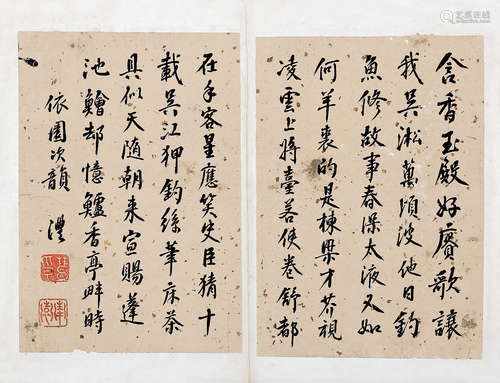 含香玉殿好賡歌讓
我吳淞萬頃波他日釣
魚修故事春深太液又如
何羊裘的是棟梁才芥視
凌雲上將臺若使卷舒都
在手客星應笑史臣猜十
載吳江狎釣絲筆床茶
具似天随朝來宣賜蓬
池鱠却憶鱸香亭畔時
依園次韻 澧